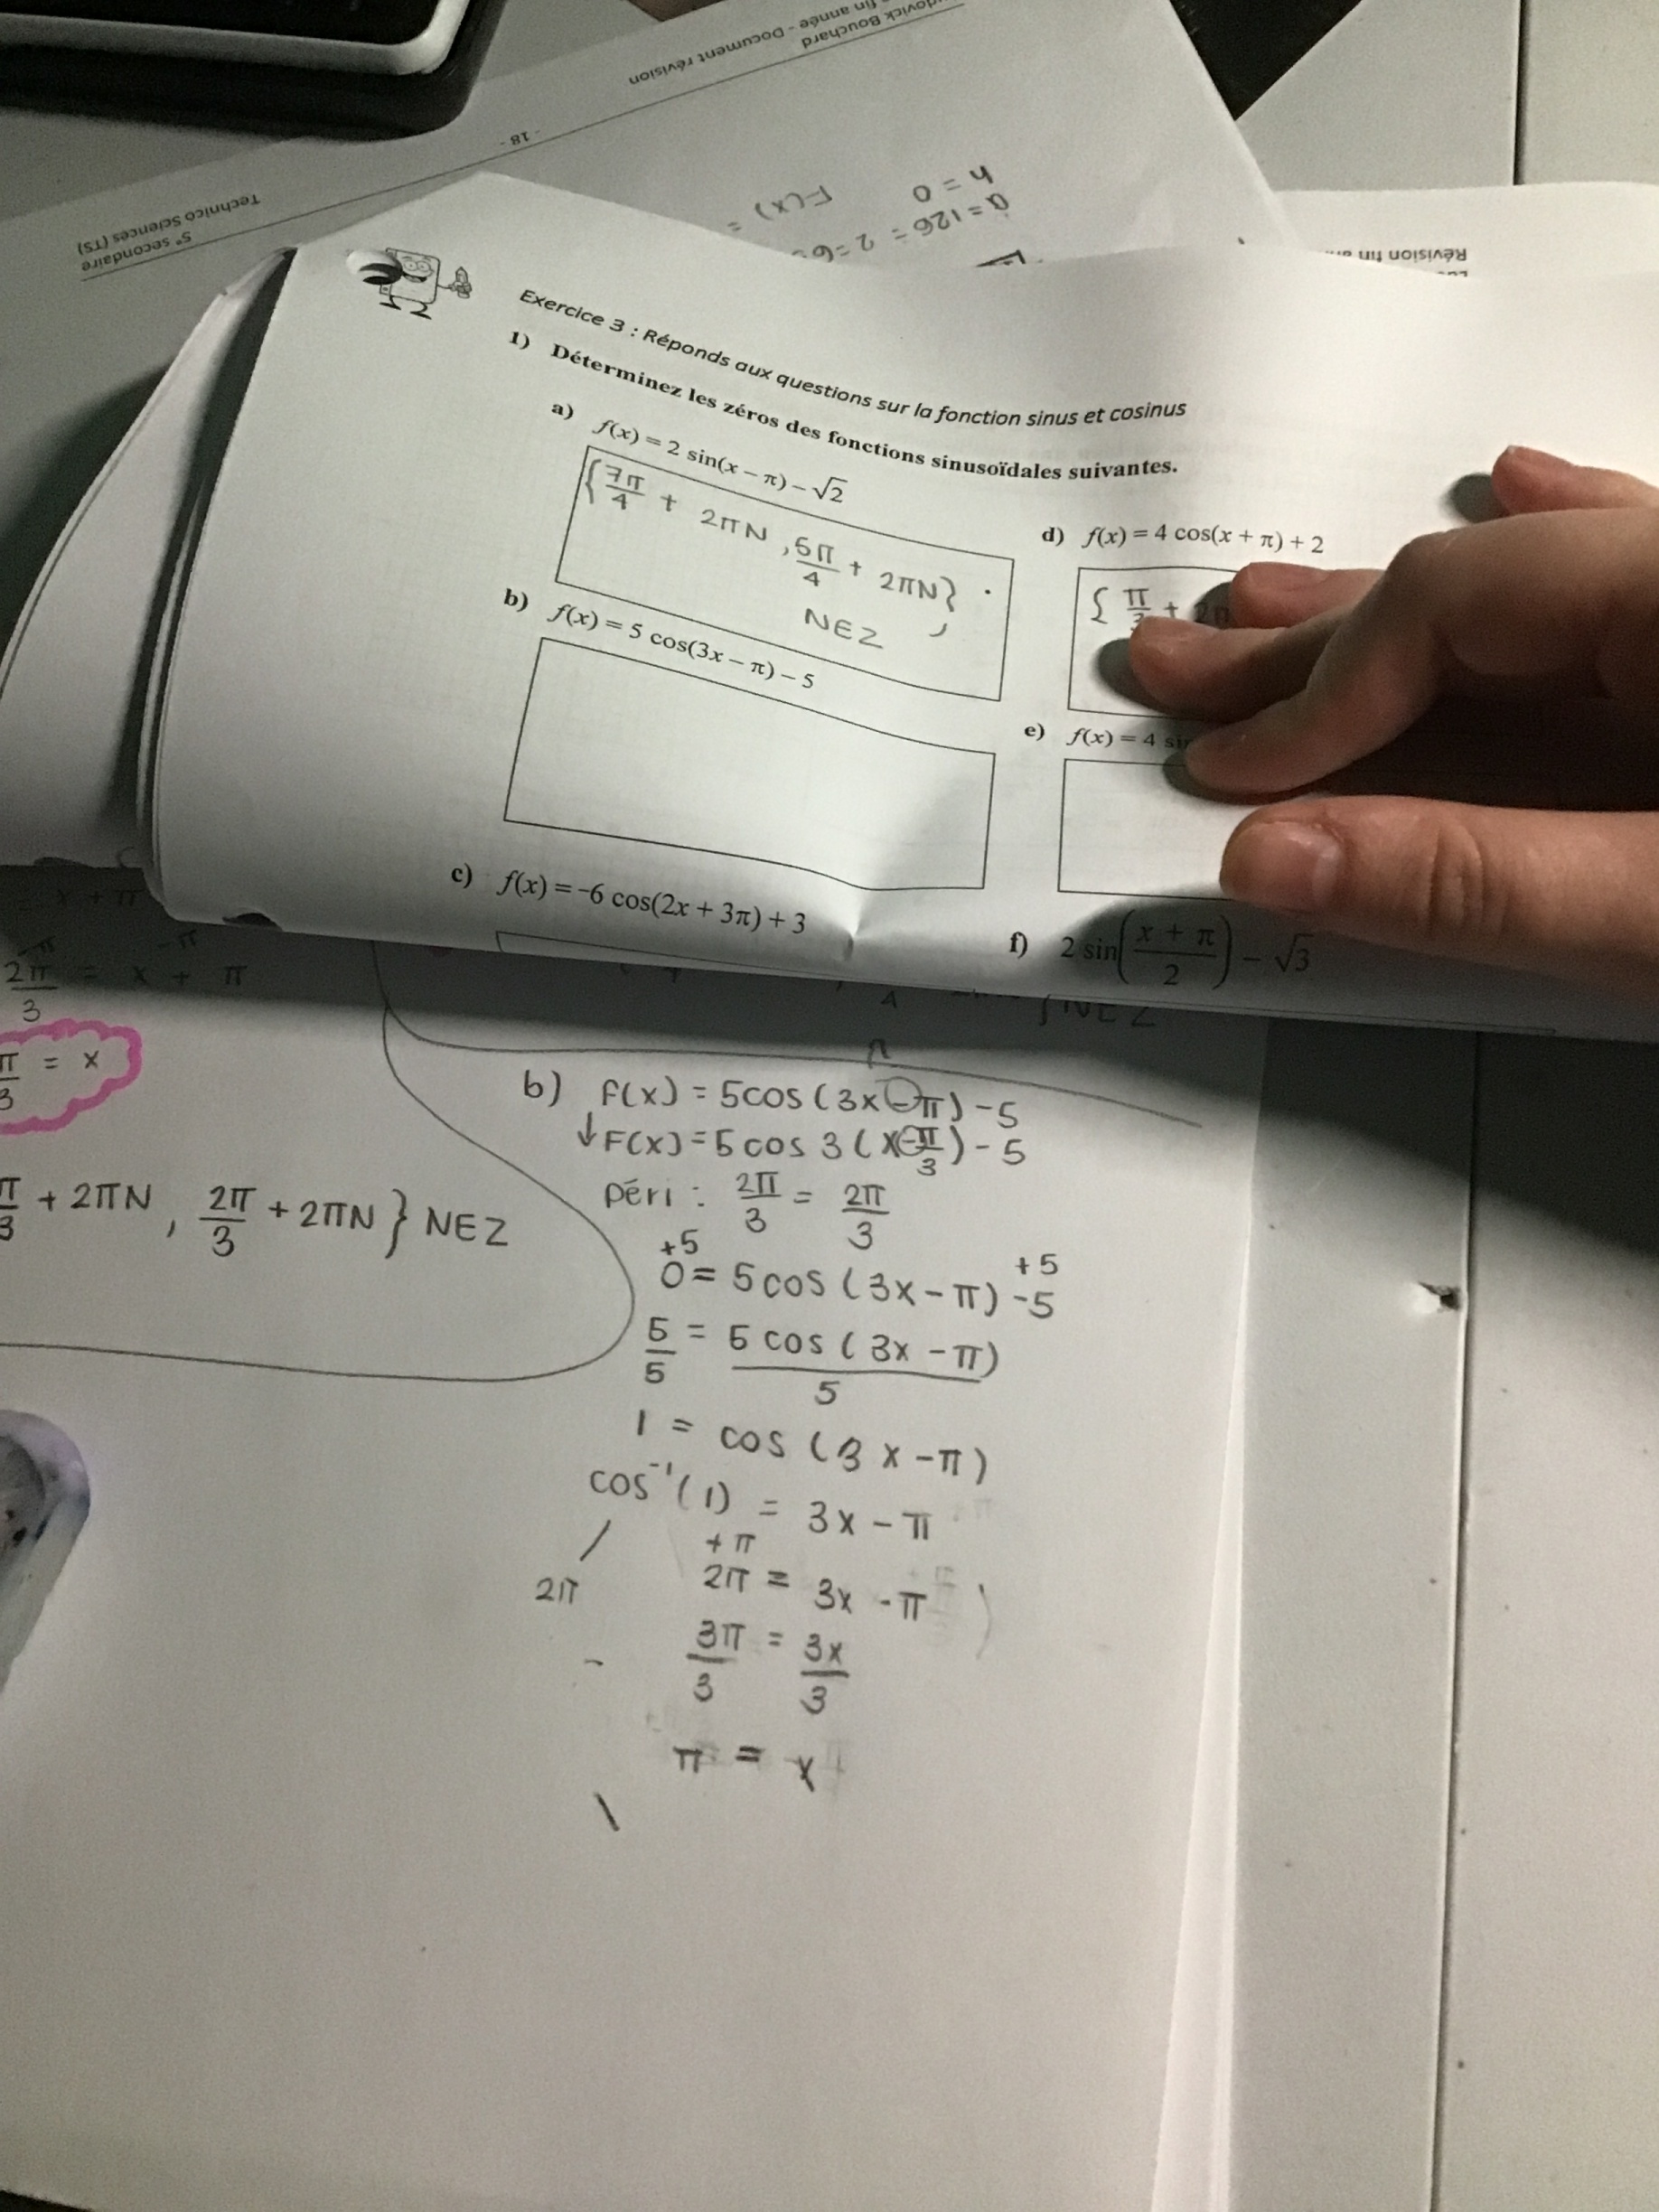 Bouchard
fin année - Document révision
- 18 -
5e secondaire
Technico Sciences (TS)
F(x) =
h = 0
a = 126 = 2 = 6
Révision fin
Exercice 3 : Réponds aux questions sur la fonction sinus et cosinus
1) Déterminez les zéros des fonctions sinusoïdales suivantes.
a) f(x) = 2 sin(x – π) – √2
{7π/4 + 2πN, 5π/4 + 2πN}
NEZ
b) f(x) = 5 cos(3x – π) – 5
c) f(x) = -6 cos(2x + 3π) + 3
d) f(x) = 4 cos(x + π) + 2
{ π/3 +
e) f(x) = 4 sin
f) 2 sin((x + π)/2) – √3
= x + π
-π -π
2π/3 = x + π
π/3 = x
π/3 + 2πN, 2π/3 + 2πN} NEZ
NEZ
b) F(x) = 5cos(3x - π) - 5
↓ F(x) = 5 cos 3(x - π/3) - 5
Péri : 2π/3 = 2π/3
+5 +5
0 = 5cos(3x - π) - 5
5/5 = 5 cos(3x - π)/5
1 = cos(3x - π)
cos⁻¹(1) = 3x - π
+π
2π 2π = 3x - π
3π/3 = 3x/3
π = x